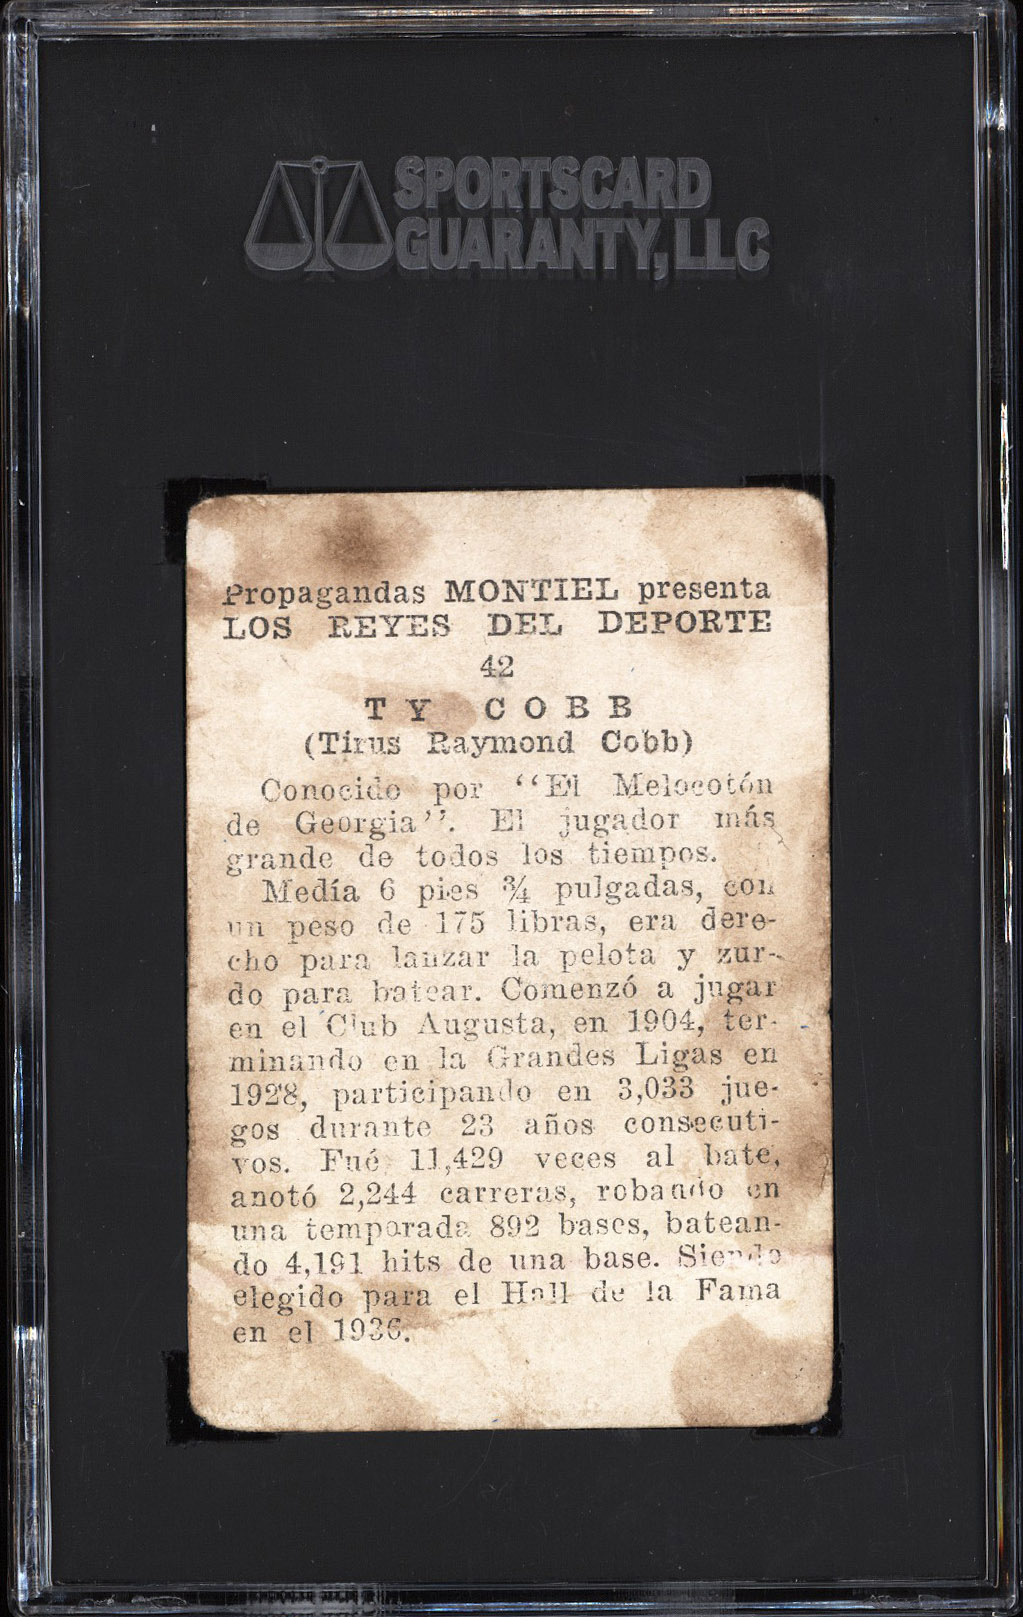 SPORTSCARD
GUARANTY, LLC
Propagandas MONTIEL presenta
LOS REYES DEL DEPORTE
42
TY COBB
(Tirus Raymond Cobb)
Conocido por "El Melocotón
de Georgia". El jugador más
grande de todos los tiempos.
Medía 6 pies ¾ pulgadas, con
un peso de 175 libras, era dere-
cho para lanzar la pelota y zur-
do para batear. Comenzó a jugar
en el Club Augusta, en 1904, ter-
minando en la Grandes Ligas en
1928, participando en 3,033 jue-
gos durante 23 años consecuti-
vos. Fué 11,429 veces al bate,
anotó 2,244 carreras, robando en
una temporada 892 bases, batean-
do 4,191 hits de una base. Siendo
elegido para el Hall de la Fama
en el 1936.